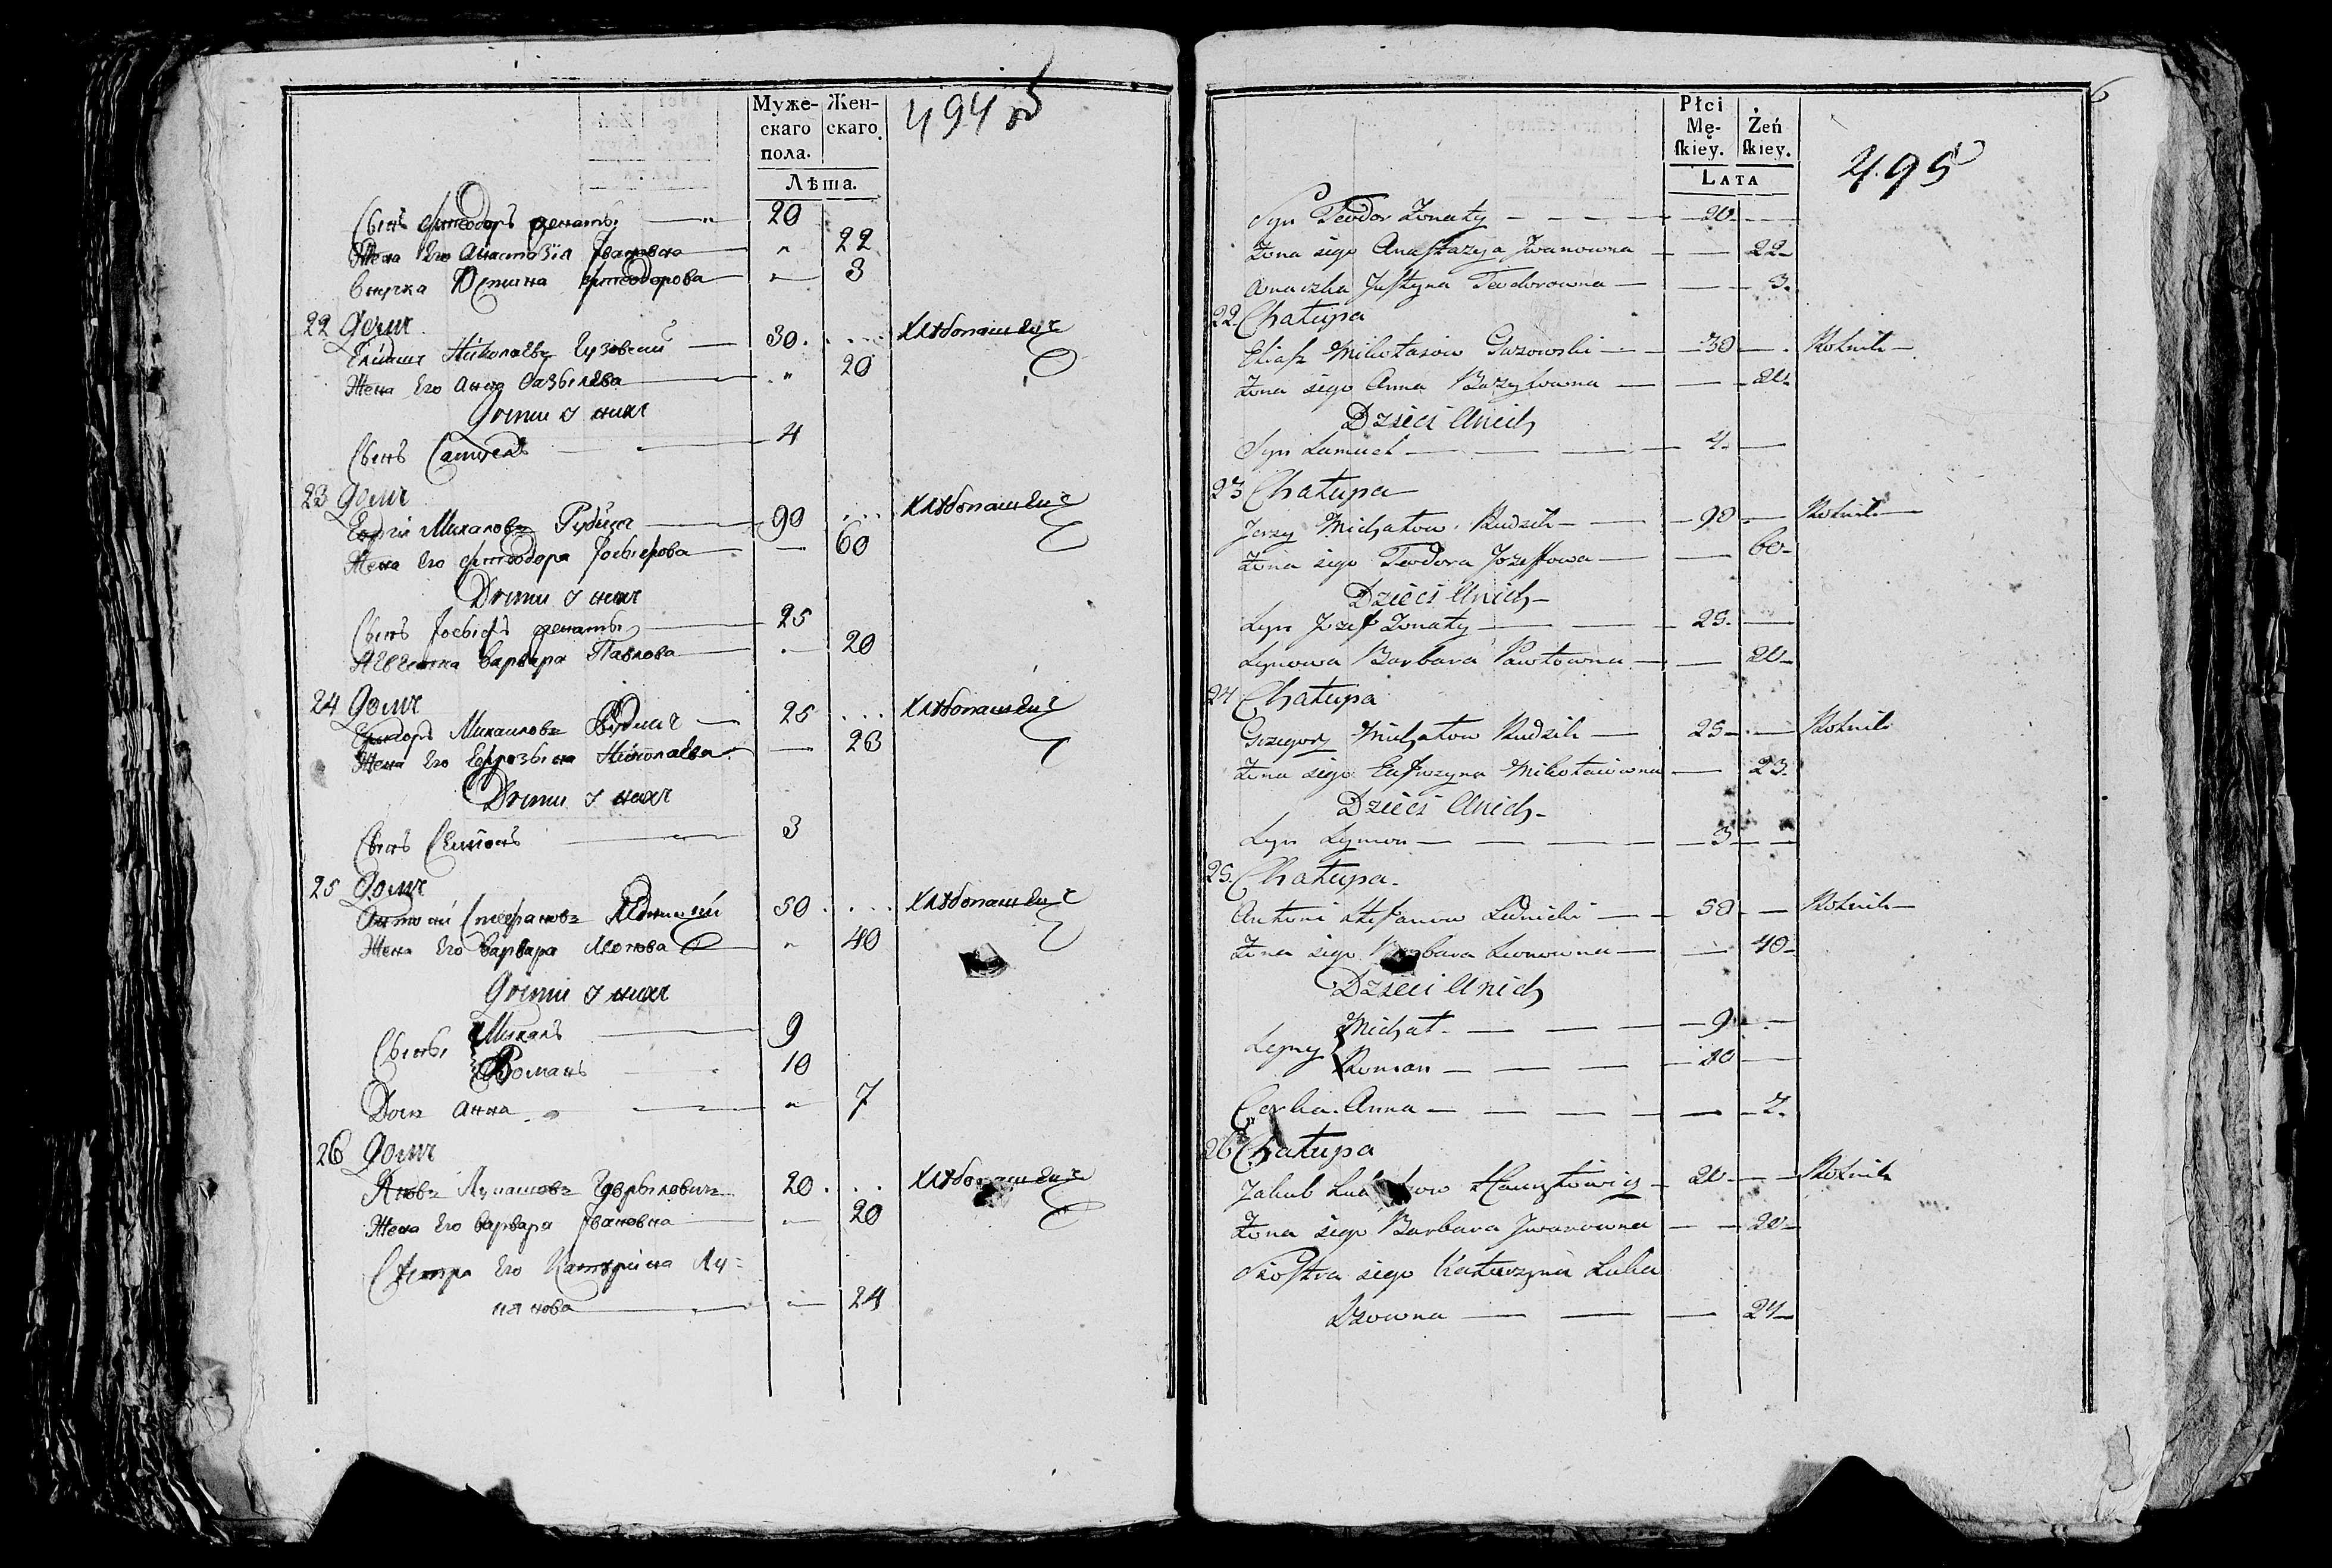 Муже-
скаго
пола.
Жен-
скаго
Лѣта.
494 об
Сынъ Фтеодоръ женаты 20
Жена Его Анастазїя Ївановна " 22
Внучка Юстина Фтеодорова " 3
22 Домъ
Елїашъ Нїколаевъ Гузовскїй 30 . . . Хлѣбопашецъ
Жена Его Анна Базылева " 20
Дѣти у нихъ
Сынъ Самуель 4
23 Домъ
Георгїй Михаловъ Рудзикъ 90 . . . Хлѣбопашецъ
Жена Его Фтеодора Їосыфова — 60
Дѣти у нихъ
Сынъ Їосыфъ женаты 25
Невѣстка Варвара Павлова — 20
24 Домъ
Михаиловъ 25 . . . Хлѣбопашецъ
Жена Его Ефрозына Нїколаева — 23
Дѣти у нихъ
Сынъ Семїонъ 3
25 Домъ
Антонїй Стефановъ Лѣдницкїй 50 . . . Хлѣбопашецъ
Жена Его Варвара Леонова " 40
Дѣти у нихъ
Сыны Михалъ 9
Романъ 10
Дочь Анна " 7
26 Домъ
Яковъ Лукашовъ Гаврыловичъ 20 . . . Хлѣбопашецъ
Жена Его Варвара Ївановна — 20
Сестра Его Катерїна Лу=
кашова — 24
6
Płci
Mę-
ſkiey.
Żeń
ſkiey.
LATA
495
Syn Teodor Żonaty — 20
Żona iego Anaſtazya Jwanowna — 22
Wnuczka Juſtyna Teodorowna — 3
22. Chałupa
Eliaſz Mikołaiow Guzowski — 30 — Rolnik
Żona iego Anna Bazylowna — 20
Dzieci Unich
Syn Samuel — 4
23 Chałupa
Jerzy Michałow Rudzik — 90 — Rolnik
Żona iego Teodora Jozeffowa — 60
Dzieci Unich
Syn Jozef Żonaty — 25
Synowa Barbara Pawłowna — 20
24 Chałupa
Grzegorz Michałow Rudzik — 25 — Rolnik
Żona iego Eufrozyna Mikołaiowna — 23
Dzieci Unich
Syn Symon — 3
25. Chałupa
Antoni Stefanow Lednicki — 50 — Rolnik
Żona iego Barbara Leonowna — 40
Dzieci Unich
Syny Michał — 9
Roman — 10
Corka Anna — 7
26 Chałupa
Jakub Hawryłowicz — 20 — Rolnik
Żona iego Barbara Jwanowna — 20
Sioſtra iego Katarzyna Luka
szowna — 24